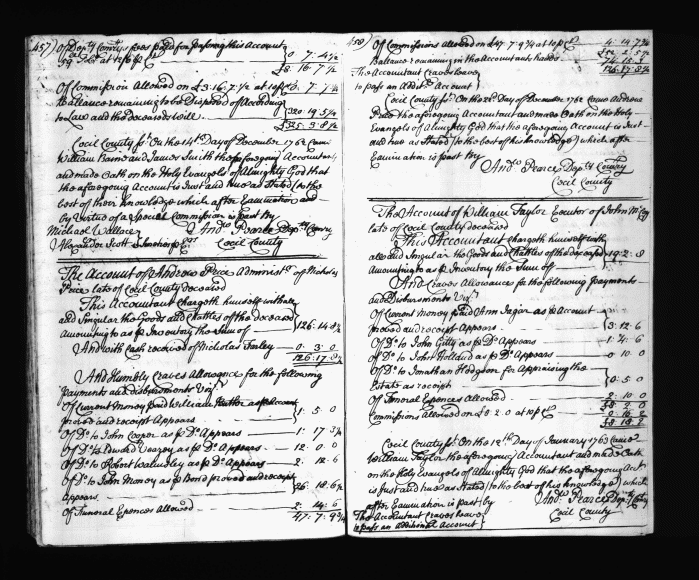 457) Of Depty Comrys fees paid for passing this Account
0. 7. 4½
£8. 16. 7½
Of Commission Allowed on £3.16.7½ at 10 p Ct 0. 7. 7½
Ballance remaining to be Disposed of According
to Law and the deceaseds Will
320. 19. 5¼
£325. 3. 8½
Cecil County ss. On the 14th Day of December 1762 Came
William Barns and James Smith the aforegoing Accountants
and made Oath on the Holy Evangels of Almighty God that
the aforegoing Account is Just and true as Stated to the
best of their Knowledge which after Examination and
by Virtue of a Special Commission is past by
Michael Wallace
Alexander Scott
Andw Pearce Depty Comry
Cecil County
The Account of Andrew Price Administr of Nicholas
Price late of Cecil County deceased
This Accountant chargeth himself with all
and Singular the Goods and Chattles of the deceased
Amounting to as p Inventory the Sum of
126. 14. 8¾
And with Cash received of Nicholas
0. 3. 0
126. 17. 8¾
And Humbly Craves Allowance for the following
Payments and disbursments Vizt
Of Current Money paid William as p Account
proved and receipt Appears
1. 5. 0
Of Do to John Cooper as p Do Appears 1. 17. 3¾
Of Do to Edward Veazey as p Do Appears 12. 0. 0
Of Do to Robert Walmsley as p Do Appears 2. 12. 6
Of Do to John Money as p Bond proved and receipt
Appears
26. 18. 6½
Of Funeral Expences Allowed 2. 14. 6
47. 7. 9¾
458) Of Commissions allowed on £47.7.9¾ at 10 p Ct 4. 14. 7¾
£52. 2. 5½
Ballance remaining in the Accountants hands 74. 15. 3
126. 17. 8½
The Accountant Craves leave
to pass an Additl Account
Cecil County ss. On the 22d Day of December 1762 Came Andrew
Price the aforegoing Accountant and made Oath on the Holy
Evangels of Almighty God that the aforegoing Account is Just
and true as Stated (to the best of his knowledge) which after
Examination is past by
Andw Pearce Depty Comry
Cecil County
The Account of William Taylor Executor of John
late of Cecil County deceased
This Accountant chargeth himself with
all and Singular the Goods and Chattles of the deceased
Amounting to as p Inventory the Sum of
19. 2. 8
And Craves Allowance for the following payments
and Disbursments Vizt
Of Current money paid Ann Sagar as p Account
proved and receipt Appears
3. 12. 6
Of Do to John Gitty as p Do Appears 1. 4. 6
Of Do to John Holland as p Do Appears 0. 10. 0
Of Do to Jonathan Hodgson for Appraising the
Estate as receipt
0. 5. 0
Of Funeral Expences Allowed 2. 10. 0
£8. 2. 0
Commissions Allowed on £8.2.0 at 10 p Ct 0. 16. 2
£8. 18. 2
Cecil County ss. On the 12th Day of January 1763 Came
William Taylor the aforegoing Accountant and made Oath
on the Holy Evangels of Almighty God that the aforegoing Act
is Just and true as Stated (to the best of his Knowledge) which
after Examination is past by
Andw Pearce Depty Comry
Cecil County
The Accountant Craves leave
to pass an Additional Account